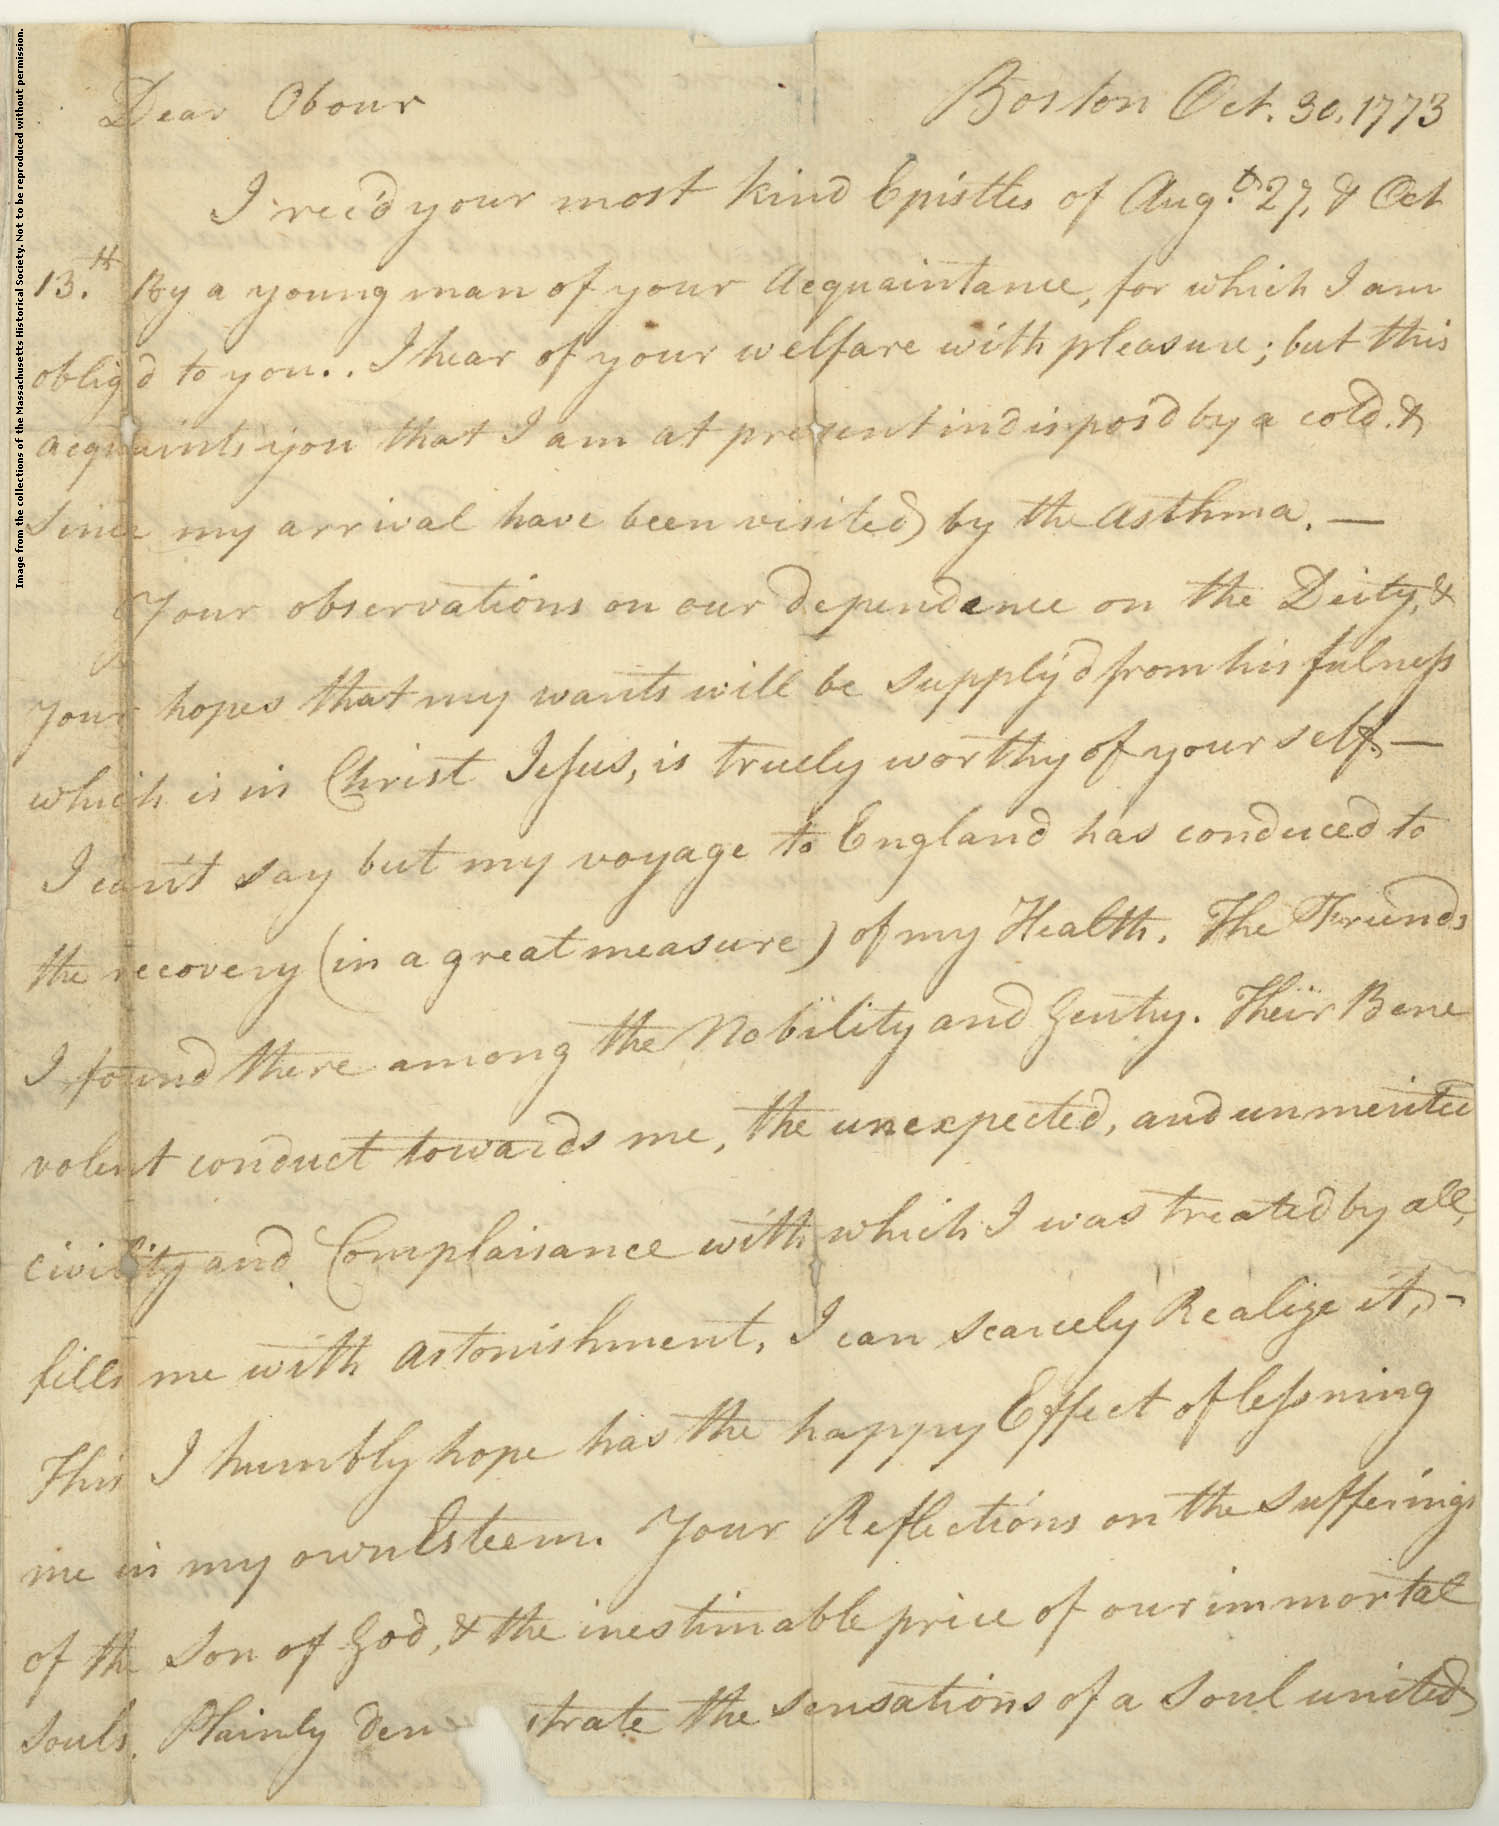 Image from the collections of the Massachusetts Historical Society. Not to be reproduced without permission.
Dear Obour
Boston Oct. 30. 1773
I rec'd your most kind Epistles of Augt. 27, & Oct
13.th By a young man of your Acquaintance, for which I am
oblig'd to you.. I hear of your welfare with pleasure; but this
acquaints you that I am at present indispos'd by a cold. &
Since my arrival have been visited by the Asthma. —
Your observations on our dependence on the Deity, &
your hopes that my wants will be supply'd from his fulneſs
which is in Christ Jeſus, is truely worthy of your self. —
I can't say but my voyage to England has conduced to
the recovery (in a great measure) of my Health. The Friends
I found there among the Nobility and Gentry. Their Bene
volent conduct towards me, the unexpected, and unmerited
civility and Complaisance with which I was treated by all,
fills me with astonishment, I can scarcely Realize it, —
This I humbly hope has the happy Effect of leſsning
me in my own Esteem. Your Reflections on the sufferings
of the Son of God, & the inestimable price of our immortal
souls, Plainly dem strate the sensations of a Soul united